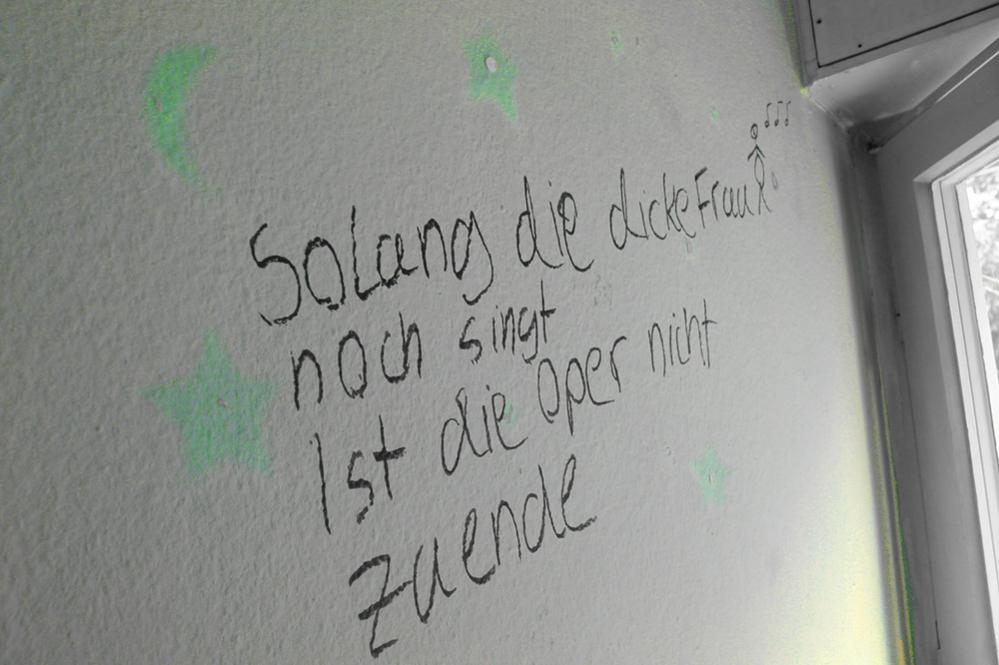 Solang die dicke Frau
noch singt
Ist die Oper nicht
zuende